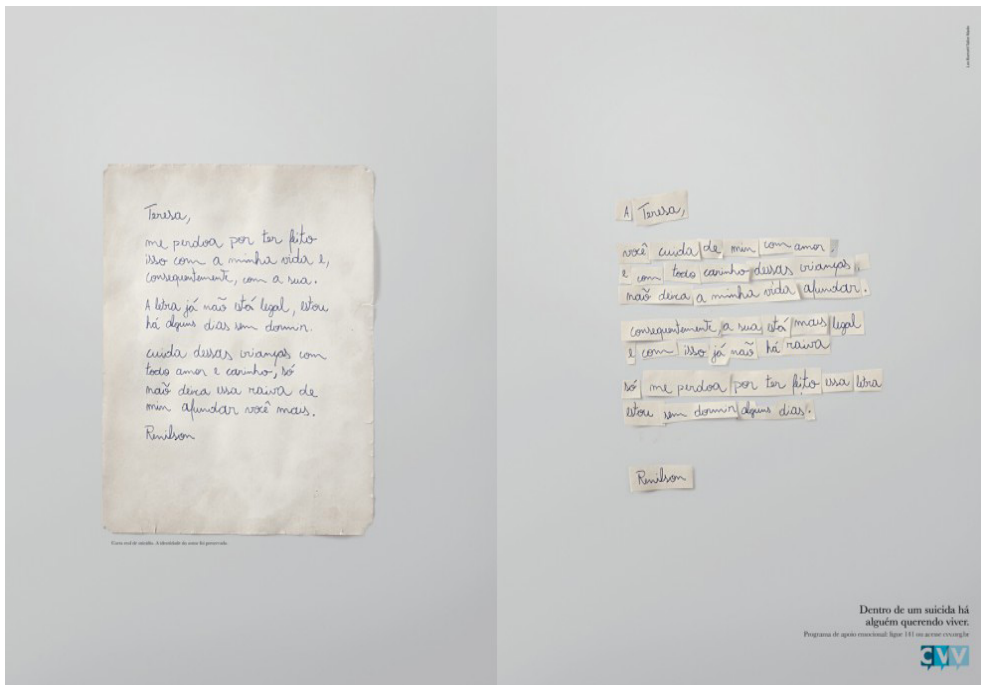 Teresa,
me perdoa por ter feito
isso com a minha vida e,
consequentemente, com a sua.
A letra já não está legal, estou
há alguns dias sem dormir.
cuida dessas crianças com
todo amor e carinho, só
não deixa essa raiva de
mim afundar você mais.
Renilson
Carta real de suicídio. A identidade do autor foi preservada.
A Teresa,
você cuida de mim com amor.
e com todo carinho dessas crianças.
não deixa a minha vida afundar.
consequentemente, a sua está mais legal
e com isso já não há raiva
só me perdoa por ter feito essa letra
estou sem dormir alguns dias.
Renilson
Dentro de um suicida há
alguém querendo viver.
Programa de apoio emocional: ligue 141 ou acesse cvv.org.br
CVV